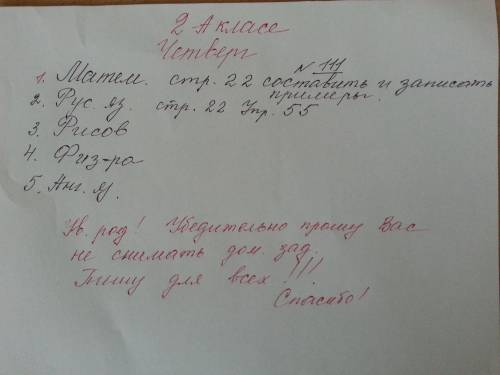 2-А класе
Четверг
1. Матем. стр. 22 № 111 составить и записать
примеры.
2. Рус. яз. стр. 22 Упр. 55
3. Рисов
4. Физ-ра
5. Анг. яз.
Ув. род! Убедительно прошу Вас
не снимать дом. зад.
Пишу для всех!!!
Спасибо!